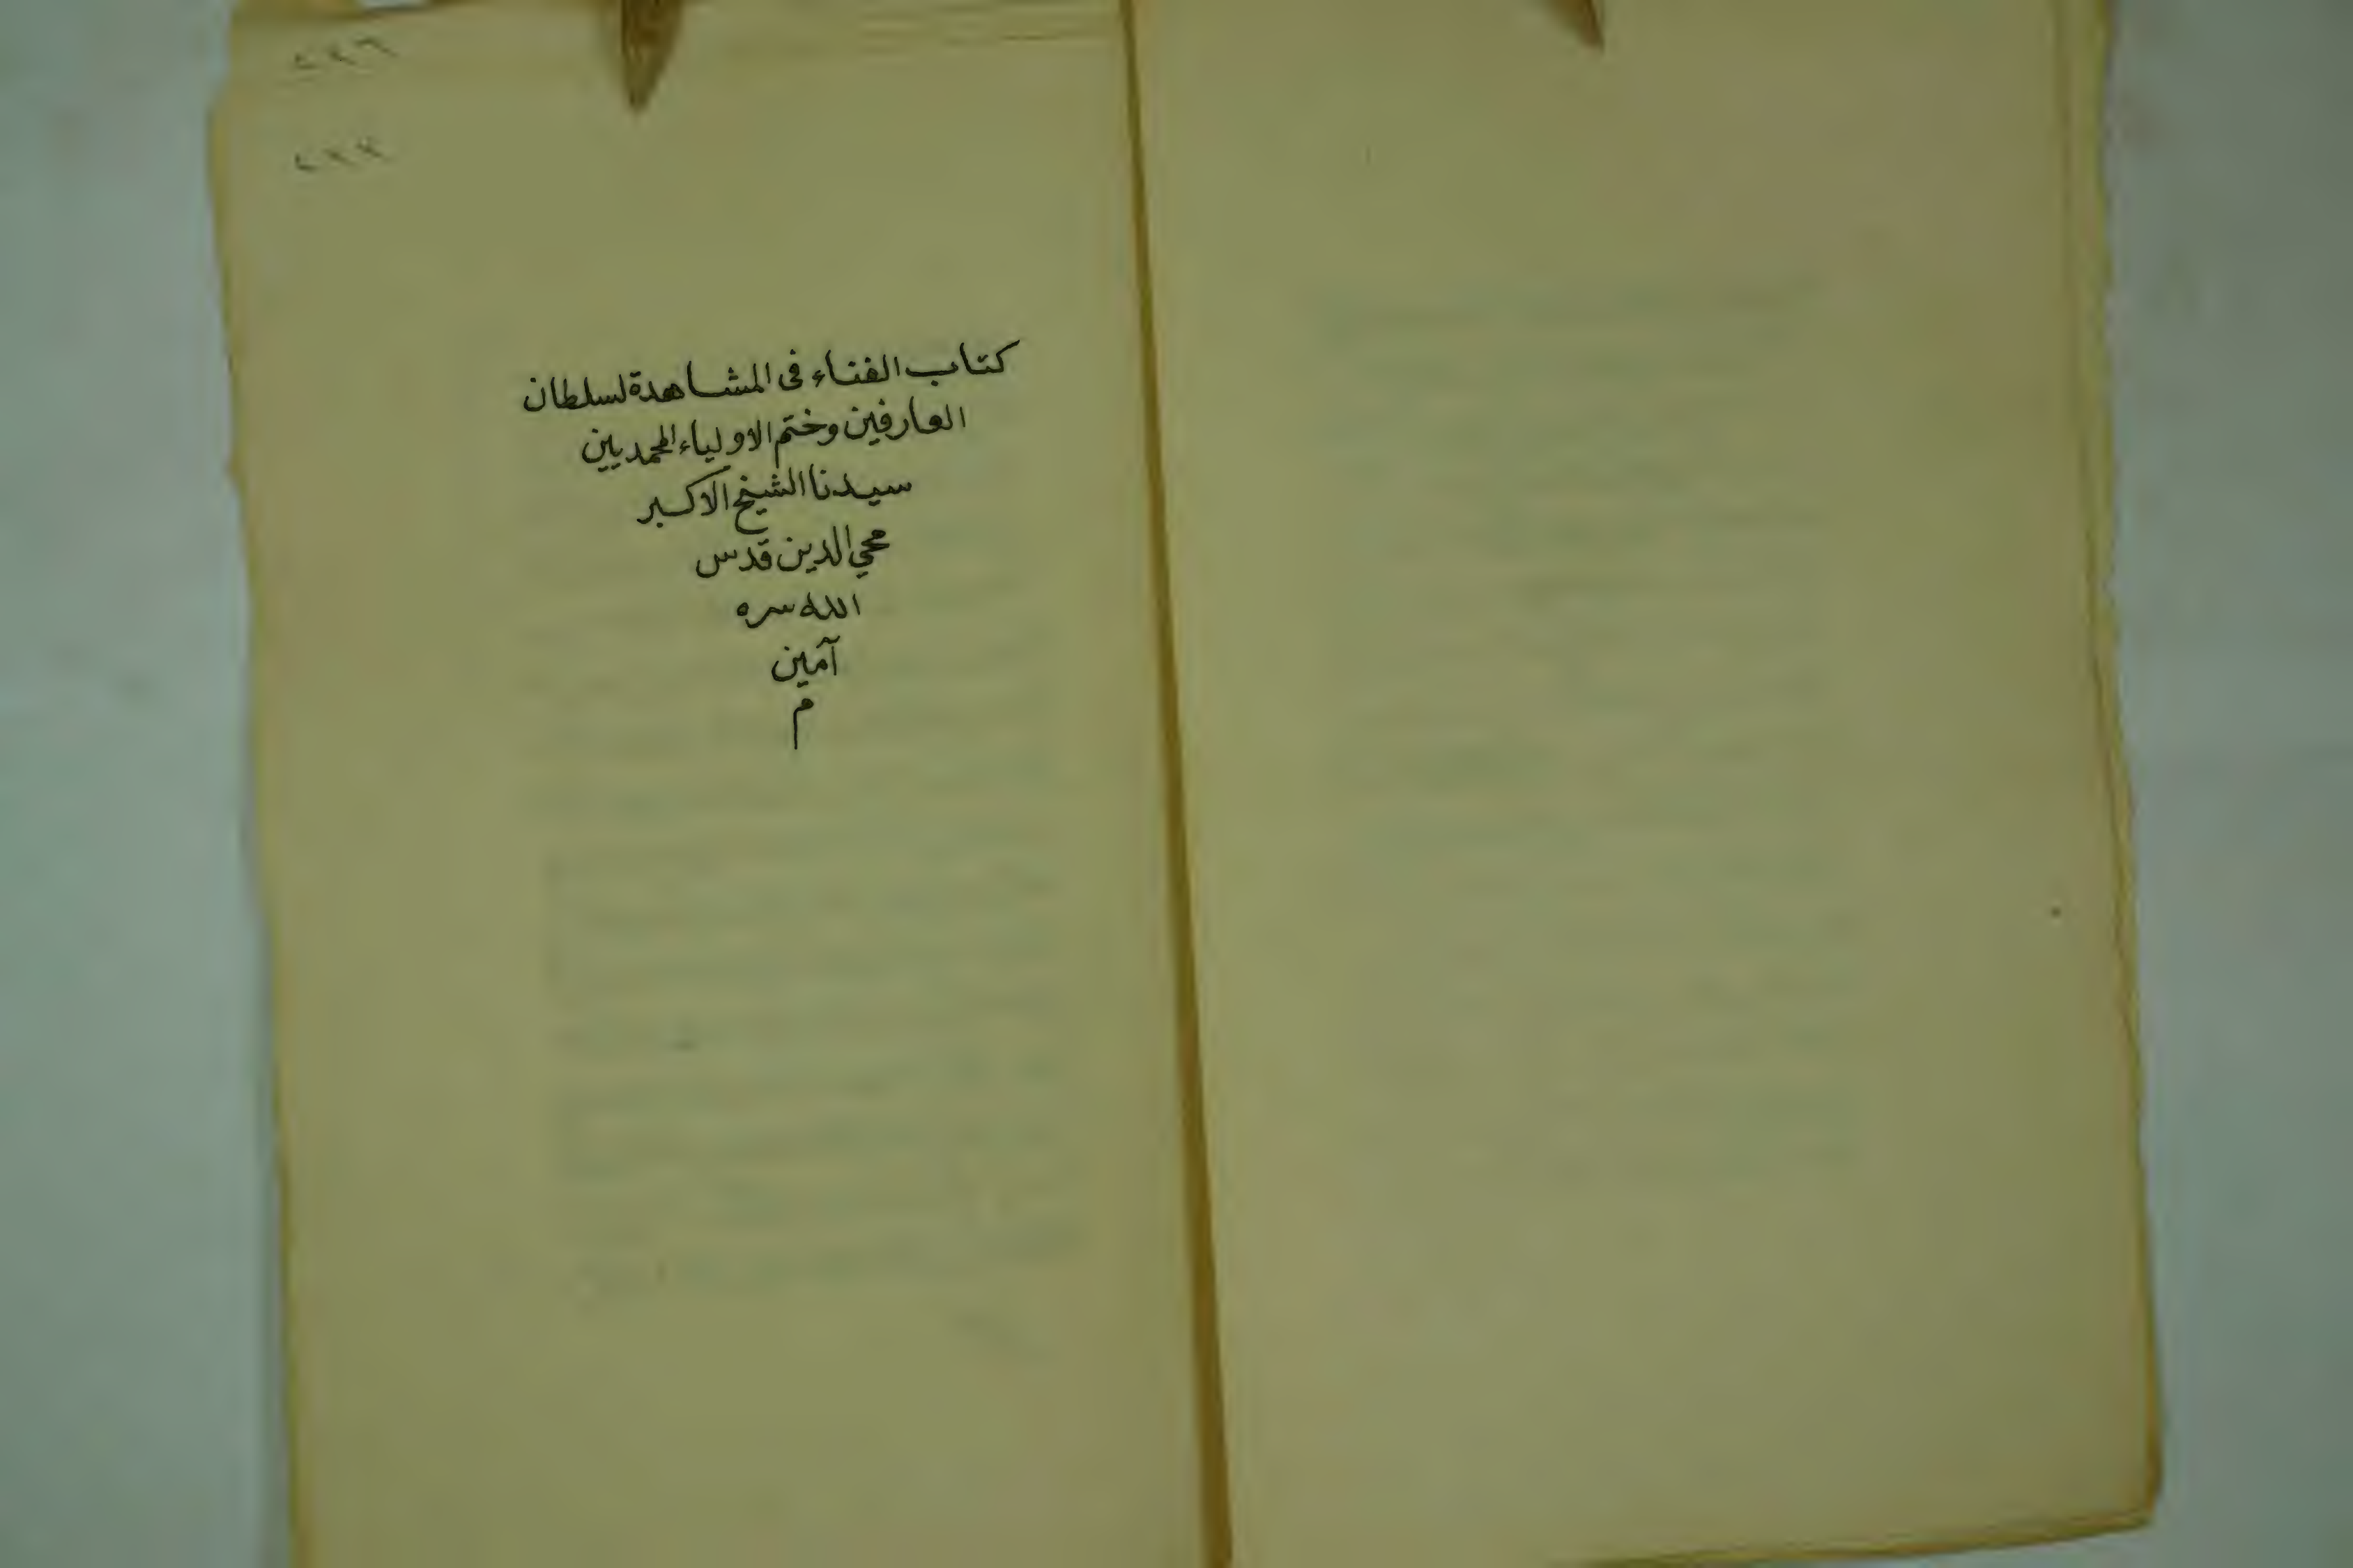 كتاب الفناء فى المشاهدة لسلطان
العارفين وختم الاولياء المحمديين
سيدنا الشيخ الاكبر
محيي الدين قدس
الله سره
آمين
م